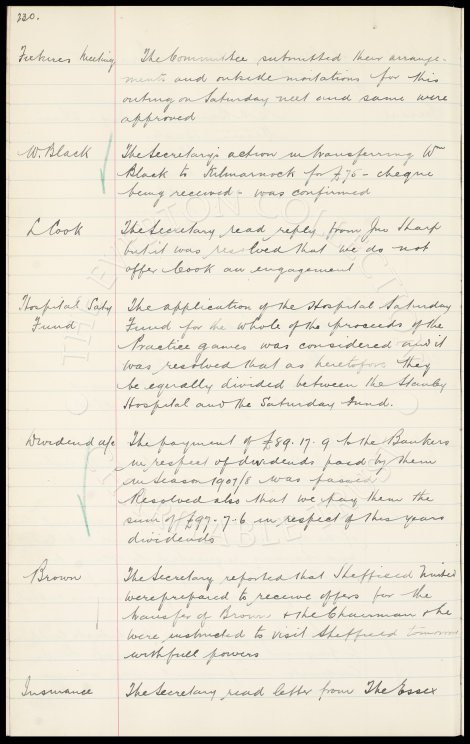 320.
Fixtures Meeting The Committee submitted their arrange-
ments and outside invitations for this
outing on Saturday next and same were
approved
W. Black The Secretary's action in transferring Wm
Black to Kilmarnock for £75 - cheque
being received - was confirmed
L Cook The Secretary read reply from Jno Sharp
but it was resolved that we do not
offer Cook an engagement
Hospital Saty The application of the Hospital Saturday
Fund Fund for the whole of the proceeds of the
Practice games was considered and it
was resolved that as heretofore they
be equally divided between the Stanley
Hospital and the Saturday Fund.
Dividend a/c The payment of £89. 17. 9 to the Bankers
in respect of dividends paid by them
in season 1907/8 was passed
Resolved also that we pay them the
sum of £97. 7. 6 in respect of this years
dividends
Brown The Secretary reported that Sheffield United
were prepared to receive offers for the
transfer of Brown & the Chairman & he
were instructed to visit Sheffield tomorrow
with full powers
Insurance The Secretary read letter from The Essex